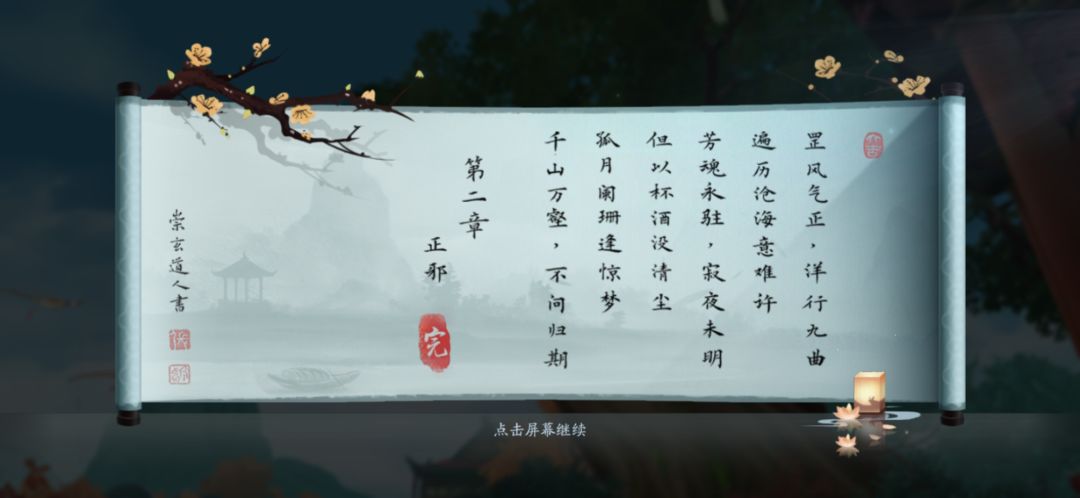 罡风气正，洋行九曲
遍历沧海意难许
芳魂永驻，寂夜未明
但以杯酒没清尘
孤月阑珊逢惊梦
千山万壑，不问归期
第二章
正邪
完
崇玄道人书
点击屏幕继续